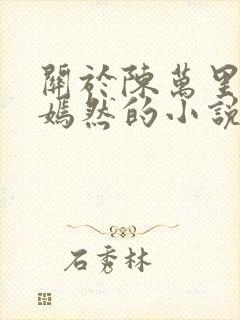 關於陳萬里
嫣然的小說
石秀林